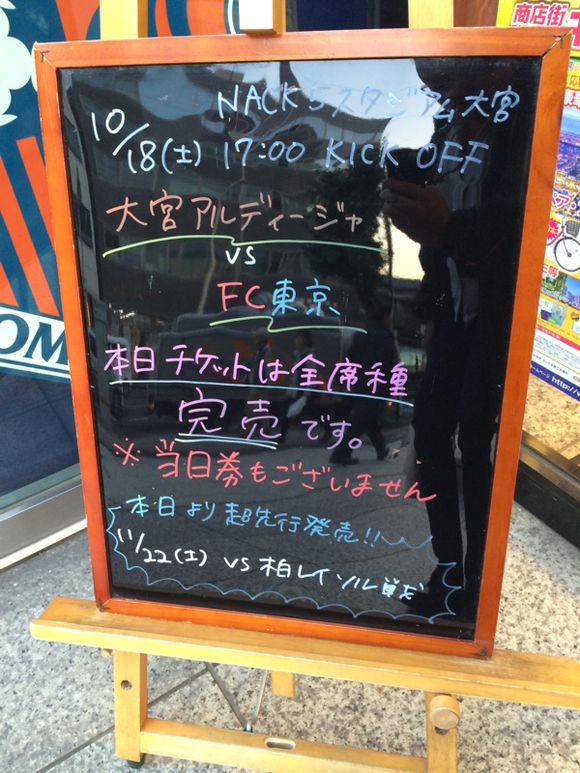 NACK5スタジアム大宮
10/18(土) 17:00 KICK OFF
大宮アルディージャ
vs
FC東京
本日チケットは全席種
完売です。
※当日券もございません
本日より超先行発売!!
11/22(土) vs 柏レイソル戦だ
商店街
OM
http://